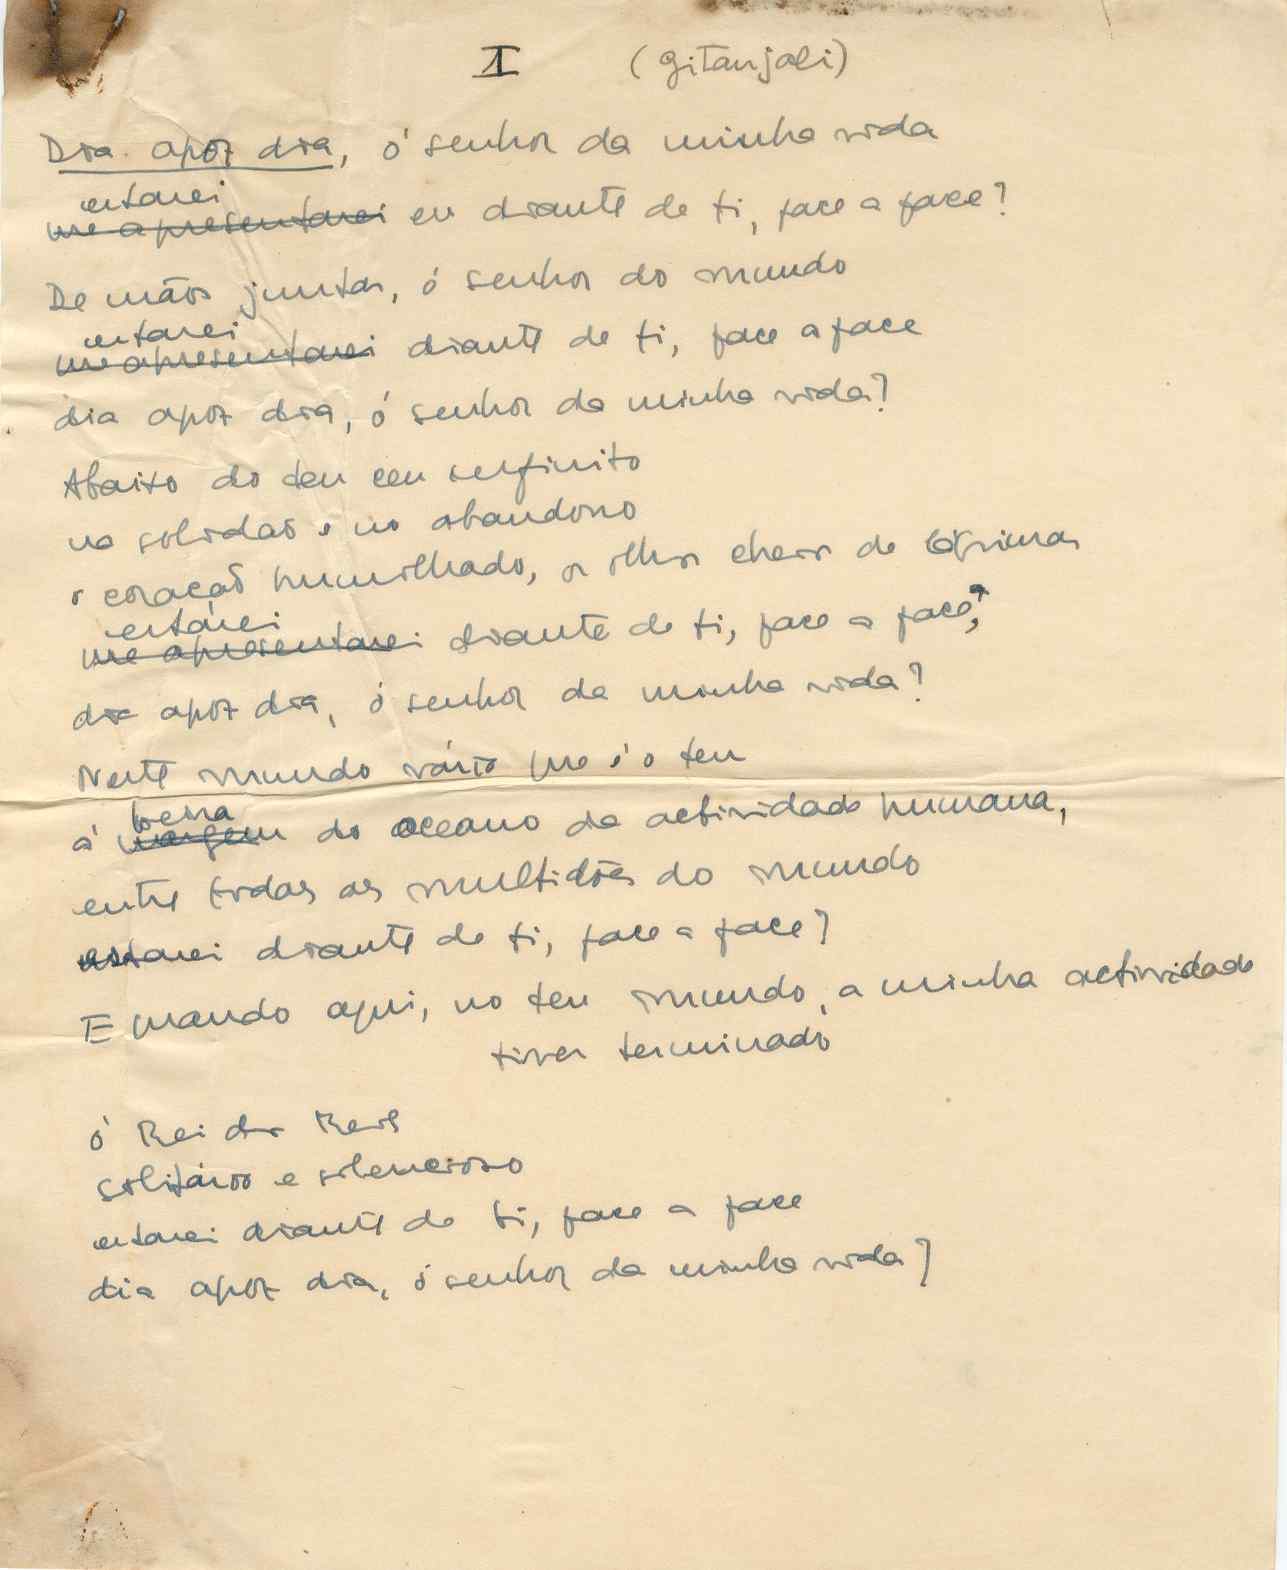 I (Gitanjali)
Dia apoz dia, ó senhor da minha vida
estarei
me apresentarei eu diante de ti, face a face?
De mãos juntas, ó senhor do mundo
estarei
me apresentarei diante de ti, face a face
dia apoz dia, ó senhor da minha vida?
Abaixo do teu ceu infinito
na solidão e no abandono
o coração humilhado, os olhos cheios de lágrimas
estarei
me apresentarei diante de ti, face a face,
dia apoz dia, ó senhor da minha vida?
Neste mundo vário que é o teu
beira
á margem do oceano da actividade humana,
entre todas as multidões do mundo
estarei diante de ti, face a face?
E quando aqui, no teu mundo, a minha actividade
tiver terminado
ó Rei dos Reis
solitário e silencioso
estarei diante de ti, face a face
dia apoz dia, ó senhor da minha vida?